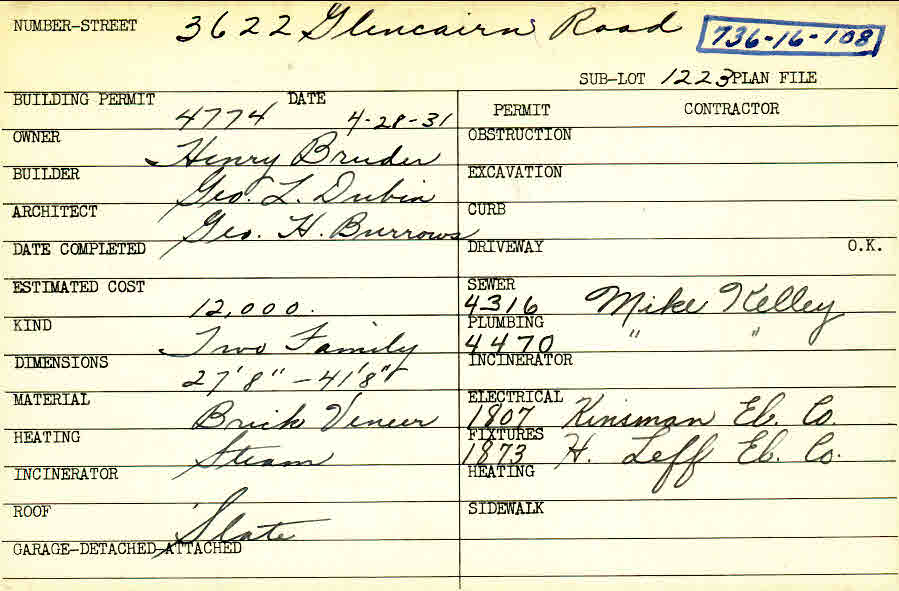 NUMBER-STREET 3622 Glencairn Road 736-16-108
SUB-LOT 1223 PLAN FILE
BUILDING PERMIT 4774 DATE 4-28-31
OWNER Henry Bruder
BUILDER Geo. L. Dubin
ARCHITECT Geo. H. Burrows
DATE COMPLETED
ESTIMATED COST 12,000.
KIND Two Family
DIMENSIONS 27'8" - 41'8"
MATERIAL Brick Veneer
HEATING Steam
INCINERATOR
ROOF Slate
GARAGE-DETACHED-ATTACHED
PERMIT CONTRACTOR
OBSTRUCTION
EXCAVATION
CURB
DRIVEWAY O.K.
SEWER 4316 Mike Kelley
PLUMBING 4470 " "
INCINERATOR
ELECTRICAL 1807 Kinsman El. Co.
FIXTURES 1873 H. Leff El. Co.
HEATING
SIDEWALK